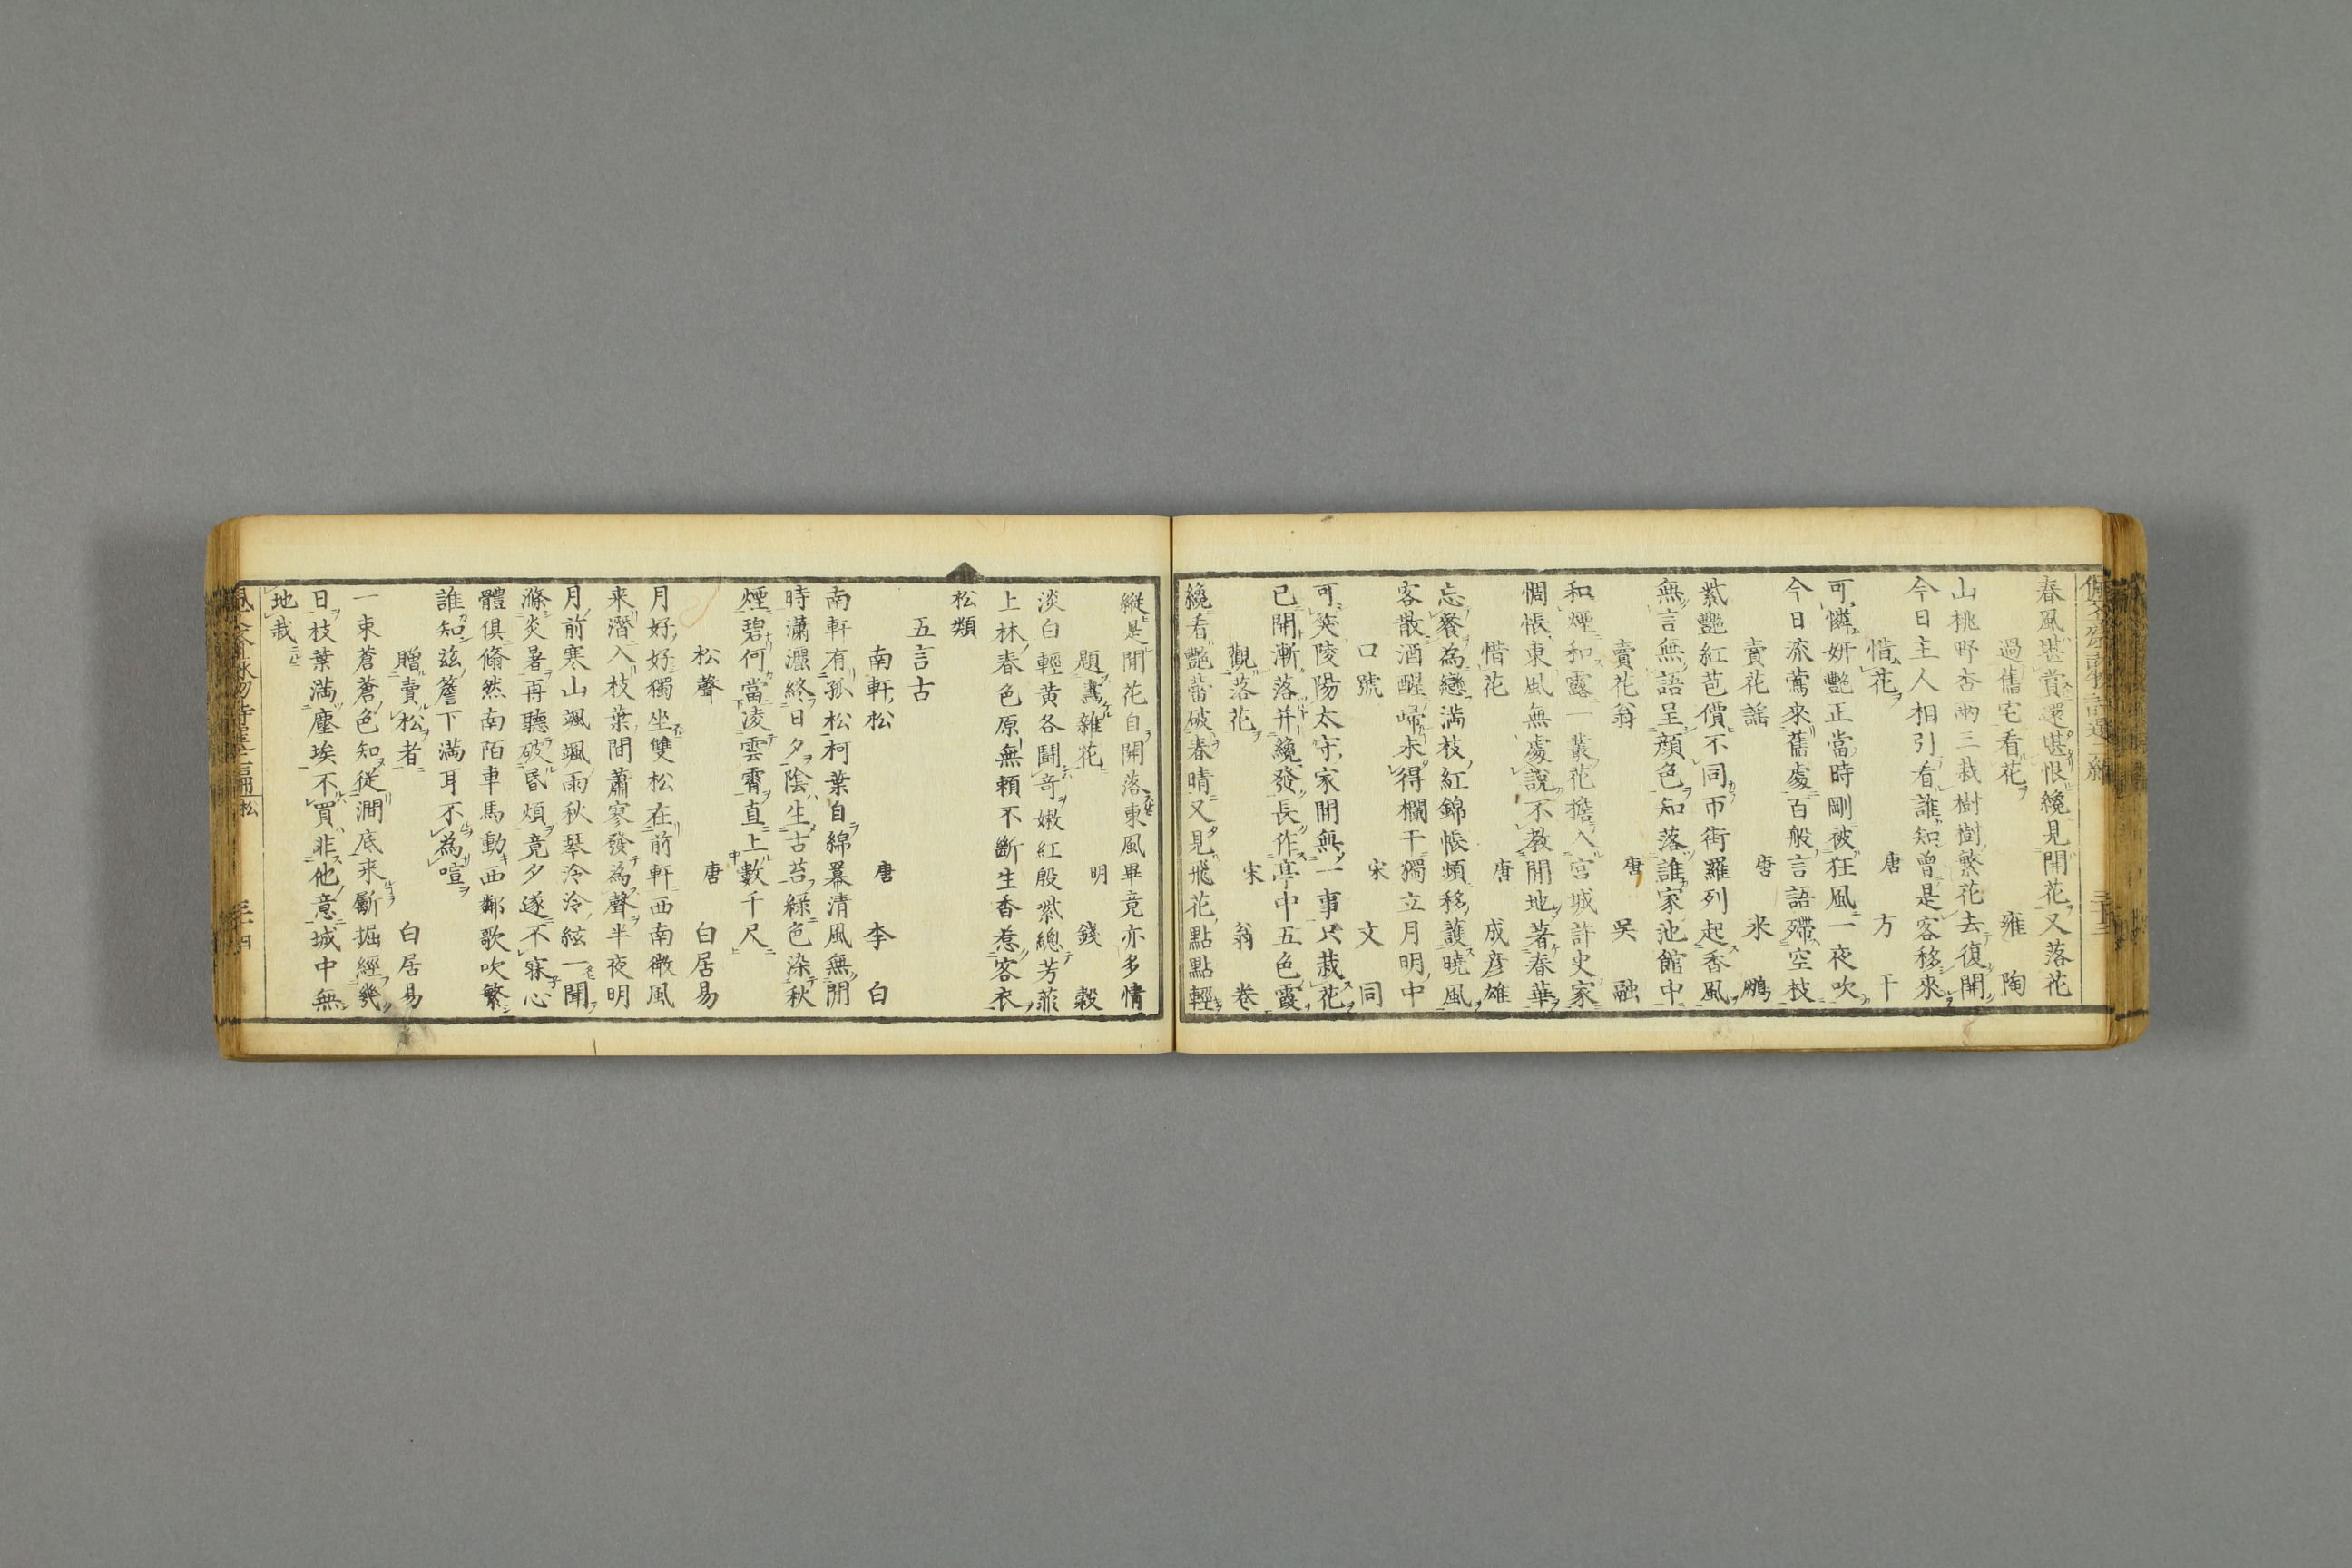 春風堪賞還堪恨纔見開花又落花
過舊宅看花 雍陶
山桃野杏兩三栽樹樹繁花去復開
今日主人相引看誰知曾是客移來
惜花 唐 方干
可憐妍艷正當時剛被狂風一夜吹
今日流鶯來舊處百般言語殢空枝
賣花謠 唐 來鵬
紫艷紅苞價不同市街羅列起香風
無言無語呈顏色知落誰家池館中
賣花翁 唐 吳融
和煙和露一叢花擔入宮城許史家
惆悵東風無處說不教閒地著春華
惜花 唐 成彦雄
忘餐為戀滿枝紅錦帳頻移護曉風
客散酒醒歸未得欄干獨立月明中
口號 宋 文同
可笑陵陽太守家閒無一事只栽花
已開漸落并纔發長作亭中五色霞
觀落花 宋 翁卷
纔看艷蕾破春晴又見飛花點點輕
縱是閒花自開落東風畢竟亦多情
題寫雜花 明 錢穀
淡白輕黄各鬪竒嫩紅殷紫總芳菲
上林春色原無賴不斷生香惹客衣
松類
五言古
南軒松 唐 李白
南軒有孤松柯葉自綿冪清風無閒
時瀟灑終日夕陰生古苔緑色染秋
煙碧何當凌雲霄直上數千尺
松聲 唐 白居易
月好好獨坐雙松在前軒西南微風
来潛入枝葉間蕭寥發為聲半夜明
月前寒山颯颯雨秋琴泠泠絃一聞
滌炎暑再聽破昏煩竟夕遂不寐心
體俱翛然南陌車馬動西鄰歌吹繁
誰知茲簷下滿耳不為喧
贈賣松者 白居易
一束蒼蒼色知從澗底来斸掘經幾
日枝葉滿塵埃不買非他意城中無
地栽
松